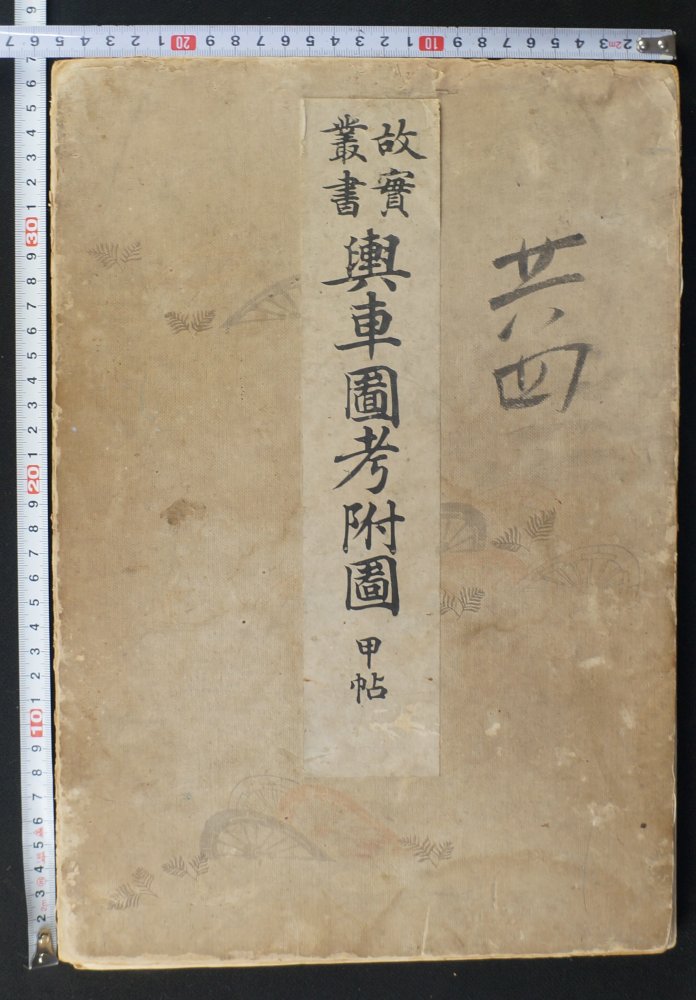 共四
故實
叢書
輿車圖考附圖
甲帖